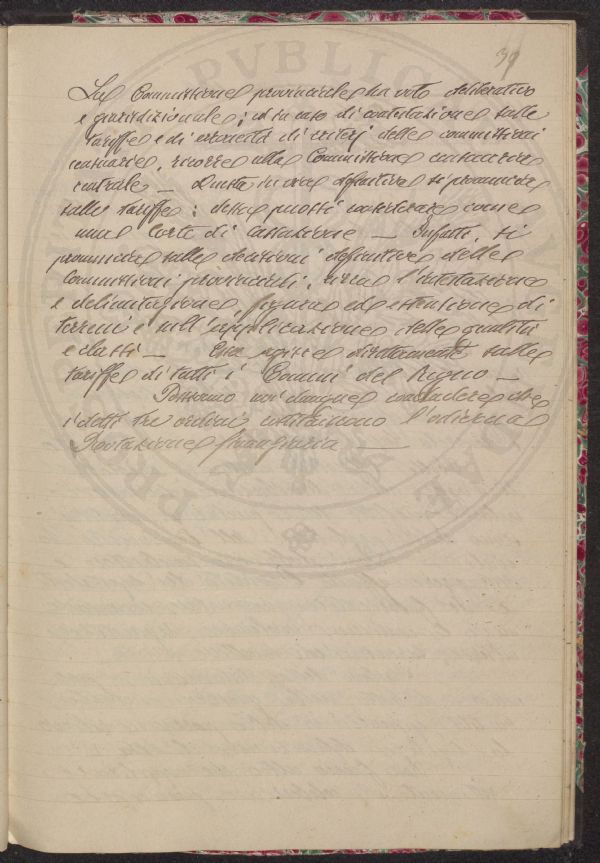 39
La Commissione provinciale ha voto deliberativo
e giurisdizionale; ed in caso di contestazione sulle
tariffe e di modalità di criterj delle commissioni
censuarie, ricorre alla Commissione censuaria
centrale — Questa in via definitiva si pronuncia
sulle tariffe: dessa puossi considerare come
una Corte di Cassazione — Infatti, si
pronuncia sulle decisioni definitive delle
Commissioni provinciali, circa l'intestazione
e delimitazione, figura ed estensione di
terreni e nell'applicazione delle qualità
e classi — Essa agisce direttamente sulle
tariffe di tutti i Comuni del Regno —
Possiamo noi dunque concludere che
i detti tre ordini costituiscono l'odierna